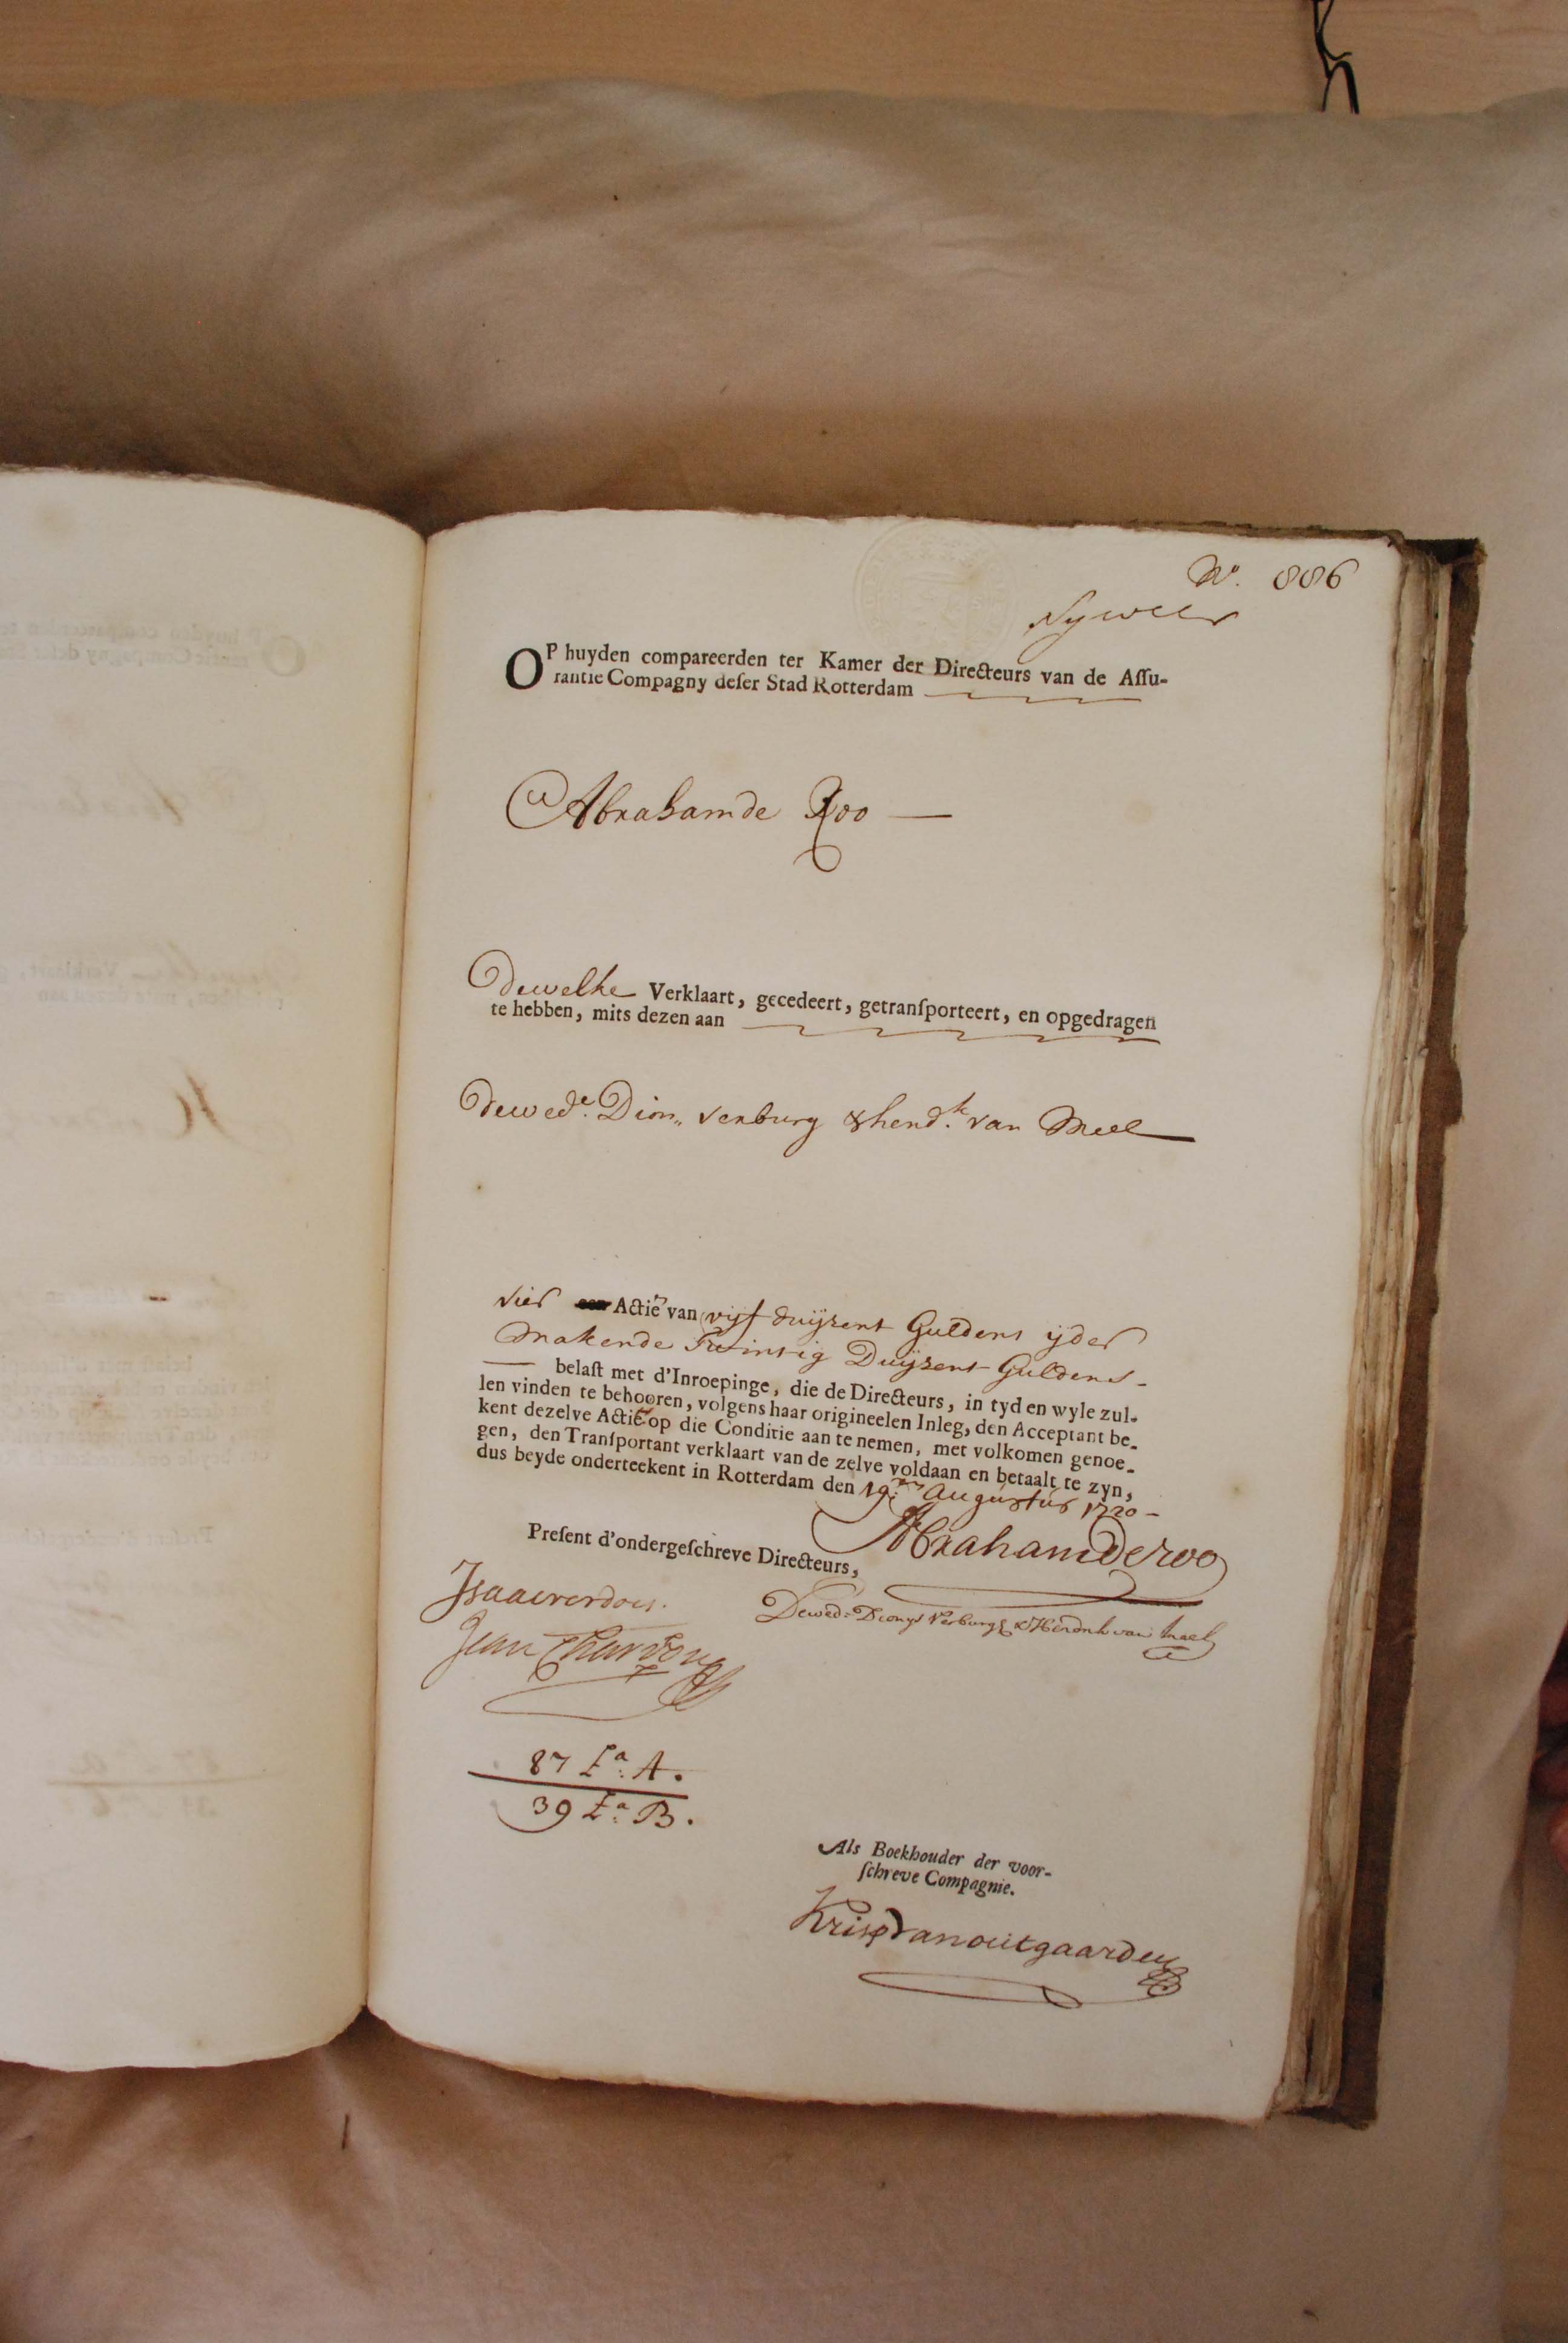 No. 886
OP huyden compareerden ter Kamer der Directeurs van de Aſſu-
rantie Compagny deſer Stad Rotterdam
Abraham de Roo
Dewelke Verklaart, gecedeert, getranſporteert, en opgedragen
te hebben, mits dezen aan
de wede. Dion,, verburg & hendk. van Meel
vier Actien van vijf duijsent Guldens ijder
makende Twintig Duijsent Guldens
belaſt met d'Inroepinge, die de Directeurs, in tyd en wyle zul-
len vinden te behooren, volgens haar origineelen Inleg, den Acceptant be-
kent dezelve Actien op die Conditie aan te nemen, met volkomen genoe-
gen, den Tranſportant verklaart van de zelve voldaan en betaalt te zyn,
dus beyde onderteekent in Rotterdam den 19en Augustus 1720
Abraham de roo
Preſent d'ondergeſchreve Directeurs,
Dewed: Dionys Verburg & Hendrik van Meel
Jean
87 La: A.
39 La: B.
Als Boekhouder der voor-
ſchreve Compagnie.
Krisp van outgaarden